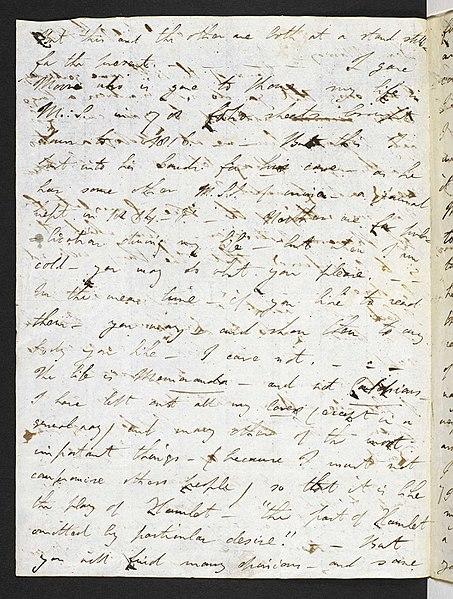 but this and the other are both at a stand still
for the present. - - - - I gave
Moore who is gone to Rome my life in
M.S. in 78 folio sheets brought
down to 1816. - - But this I
put into his hands for his care - as he
has some other M.S.S. of mine - a journal
kept in 1814 &c. - Neither are for publication
during my life - but when I am
cold - you may do what you please. -
In the mean time - if you like to read
them - you may - and show them to any
body you like - I care not. - - -
The life is Memoranda - and not Confessions
I have left out all my loves (except in a
general way) and many other of the most
important things - (because I must not
compromise other people) so that it is like
the play of Hamlet - "the part of Hamlet
omitted by particular desire." - - But
you will find many opinions - and some